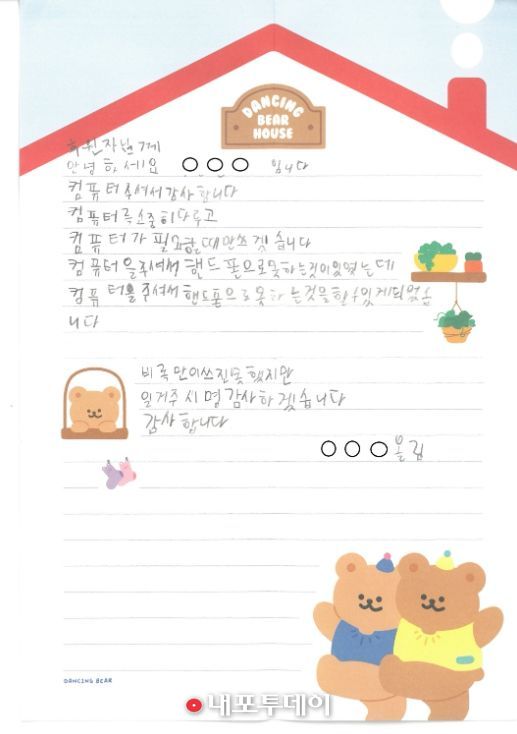 DANCING
BEAR
HOUSE
후원자님께
안녕하세요 ○○○ 입니다
컴퓨터주셔서감사합니다
컴퓨터를소중히다루고
컴퓨터가 필요할때만쓰겟습니다
컴퓨터을주셔서 핸드폰으로못하는것이있었는데
컴퓨터를 주셔서핸드폰으로못하는것을할수있게되었습
니다
비록만이쓰진못했지만
일거주시명감사하겠습니다
감사합니다
○○○올림
DANCING BEAR
내포투데이